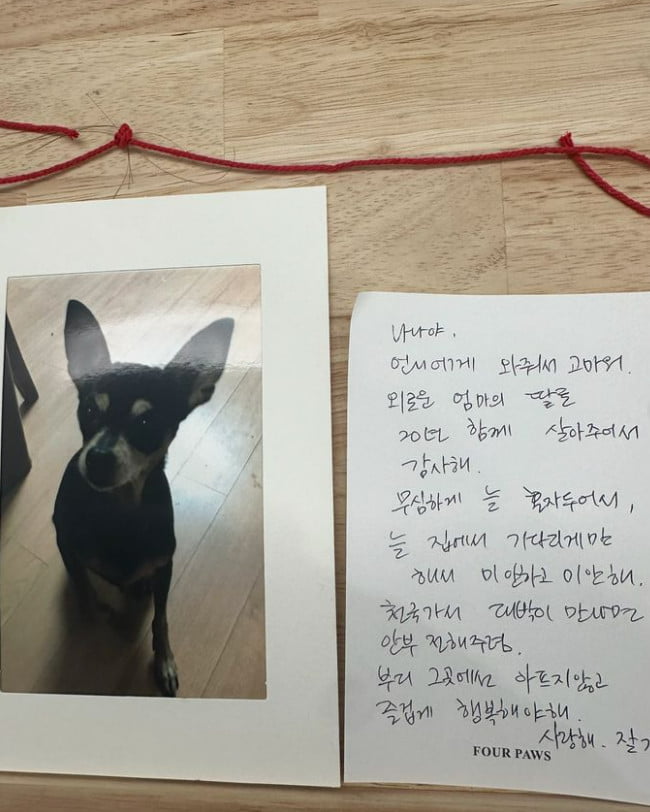 나나야.
언니에게 와줘서 고마워.
외로운 엄마의 딸로
20년 함께 살아주어서
감사해.
무심하게 늘 혼자두어서,
늘 집에서 기다리게만
해서 미안하고 미안해.
천국가서 대박이 만나면
안부 전해주렴.
부디 그곳에선 아프지않고
즐겁게 행복해야해.
사랑해. 잘
FOUR PAWS